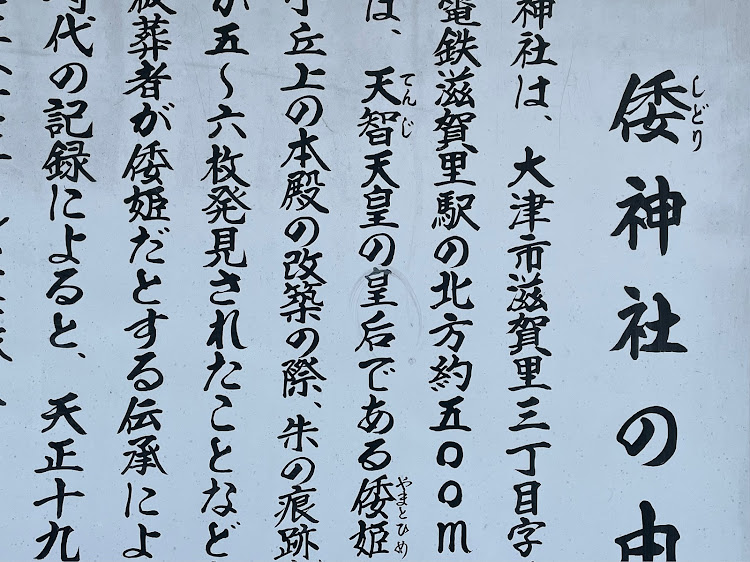 倭神社の由
しどり
神社は、大津市滋賀里三丁目字
電鉄滋賀里駅の北方約五〇〇m
は、天智天皇の皇后である倭姫
てんじ
やまとひめ
丘上の本殿の改築の際、朱の痕跡
が五～六枚発見されたことなど
被葬者が倭姫だとする伝承によ
時代の記録によると、天正十九